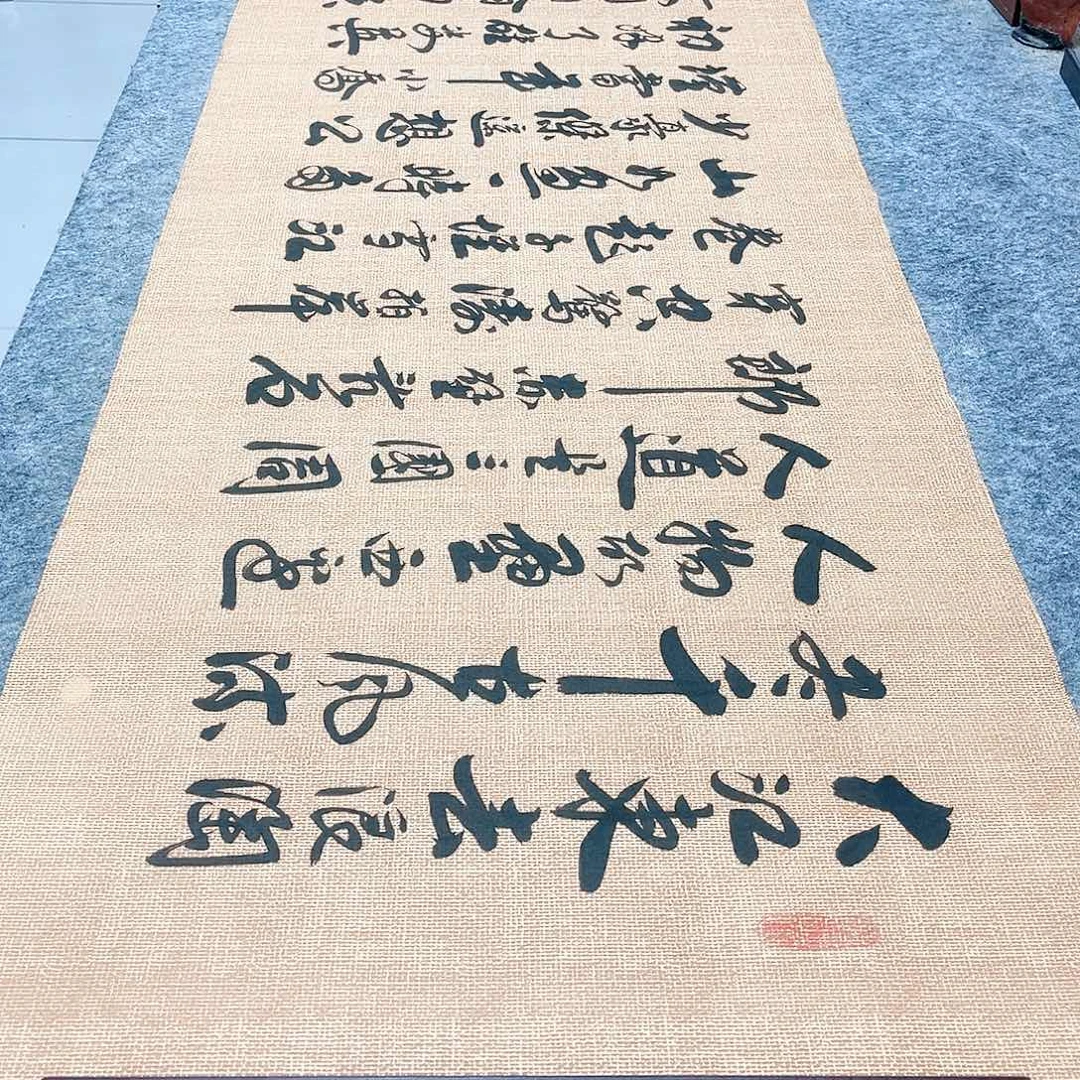 大江東去浪淘
尽千古風流
人物故壘西邊
人道是三國周
郎赤壁亂石
穿空驚濤拍岸
卷起千堆雪江
山如畫一時多
少豪傑遥想公
瑾當年小喬
初嫁了雄姿英